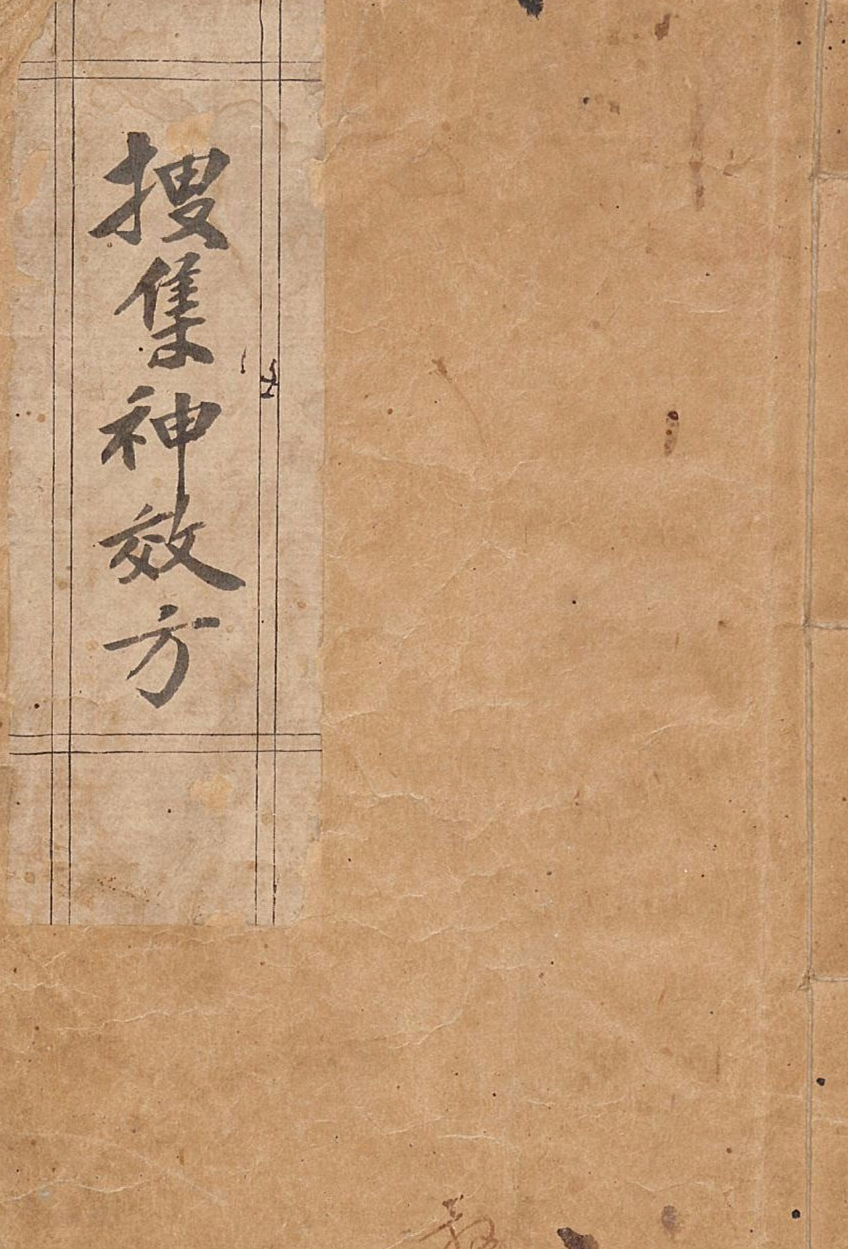 搜集神效方